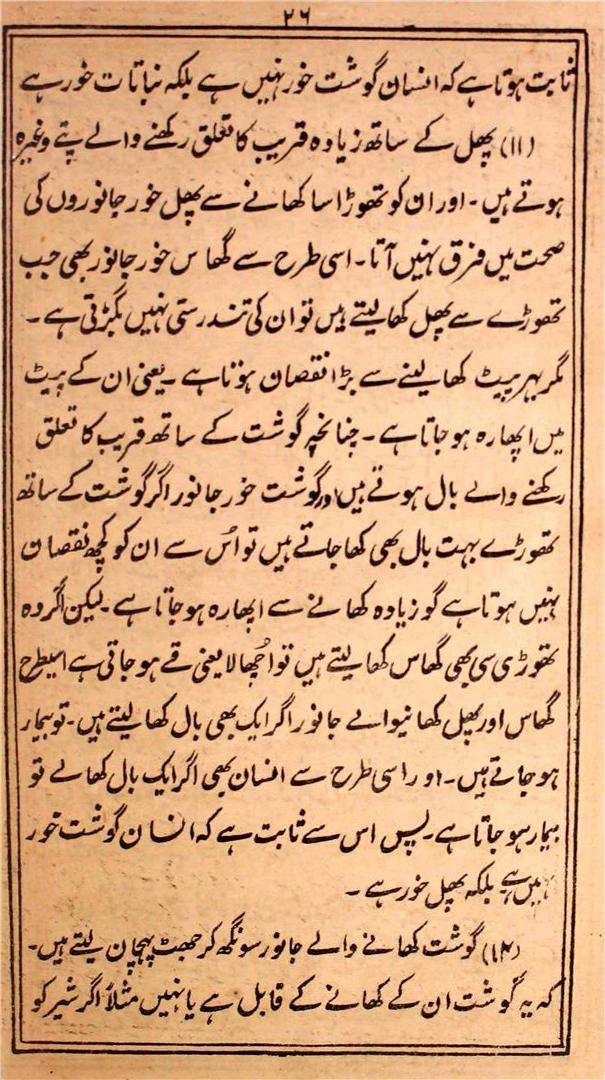 ۲۶
ثابت ہوتا ہے کہ انسان گوشت خور نہیں ہے بلکہ نباتات خور ہے
(۱۱) پھل کے ساتھ زیادہ قریب کا تعلق رکھنے والے پتے وغیرہ
ہوتے ہیں۔ اور ان کو تھوڑا سا کھانے سے پھل خور جانوروں کی
صحت میں فرق نہیں آتا۔ اسی طرح سے گھاس خور جانور بھی جب
تھوڑے سے پھل کھا لیتے ہیں تو ان کی تندرستی نہیں بگڑتی ہے۔
مگر بھر پیٹ کھا لینے سے بڑا نقصان ہوتا ہے۔ یعنی ان کے پیٹ
میں اپھارہ ہو جاتا ہے۔ چنانچہ گوشت کے ساتھ قریب کا تعلق
رکھنے والے بال ہوتے ہیں اور گوشت خور جانور اگر گوشت کے ساتھ
تھوڑے بہت بال بھی کھا جاتے ہیں تو اُس سے ان کو کچھ نقصان
نہیں ہوتا ہے گو زیادہ کھانے سے اپھارہ ہو جاتا ہے۔ لیکن اگر وہ
تھوڑی سی بھی گھاس کھا لیتے ہیں تو اُچھالا یعنی قے ہو جاتی ہے اسیطرح
گھاس اور پھل کھانیوالے جانور اگر ایک بھی بال کھا لیتے ہیں۔ تو بیمار
ہو جاتے ہیں۔ اور اسی طرح سے انسان بھی اگر ایک بال کھا لے تو
بیمار ہو جاتا ہے۔ پس اس سے ثابت ہے کہ انسان گوشت خور
نہیں ہے بلکہ پھل خور ہے۔
(۱۲) گوشت کھانے والے جانور سونگھ کر جھٹ پہچان لیتے ہیں۔
کہ یہ گوشت ان کے کھانے کے قابل ہے یا نہیں مثلاً اگر شیر کو